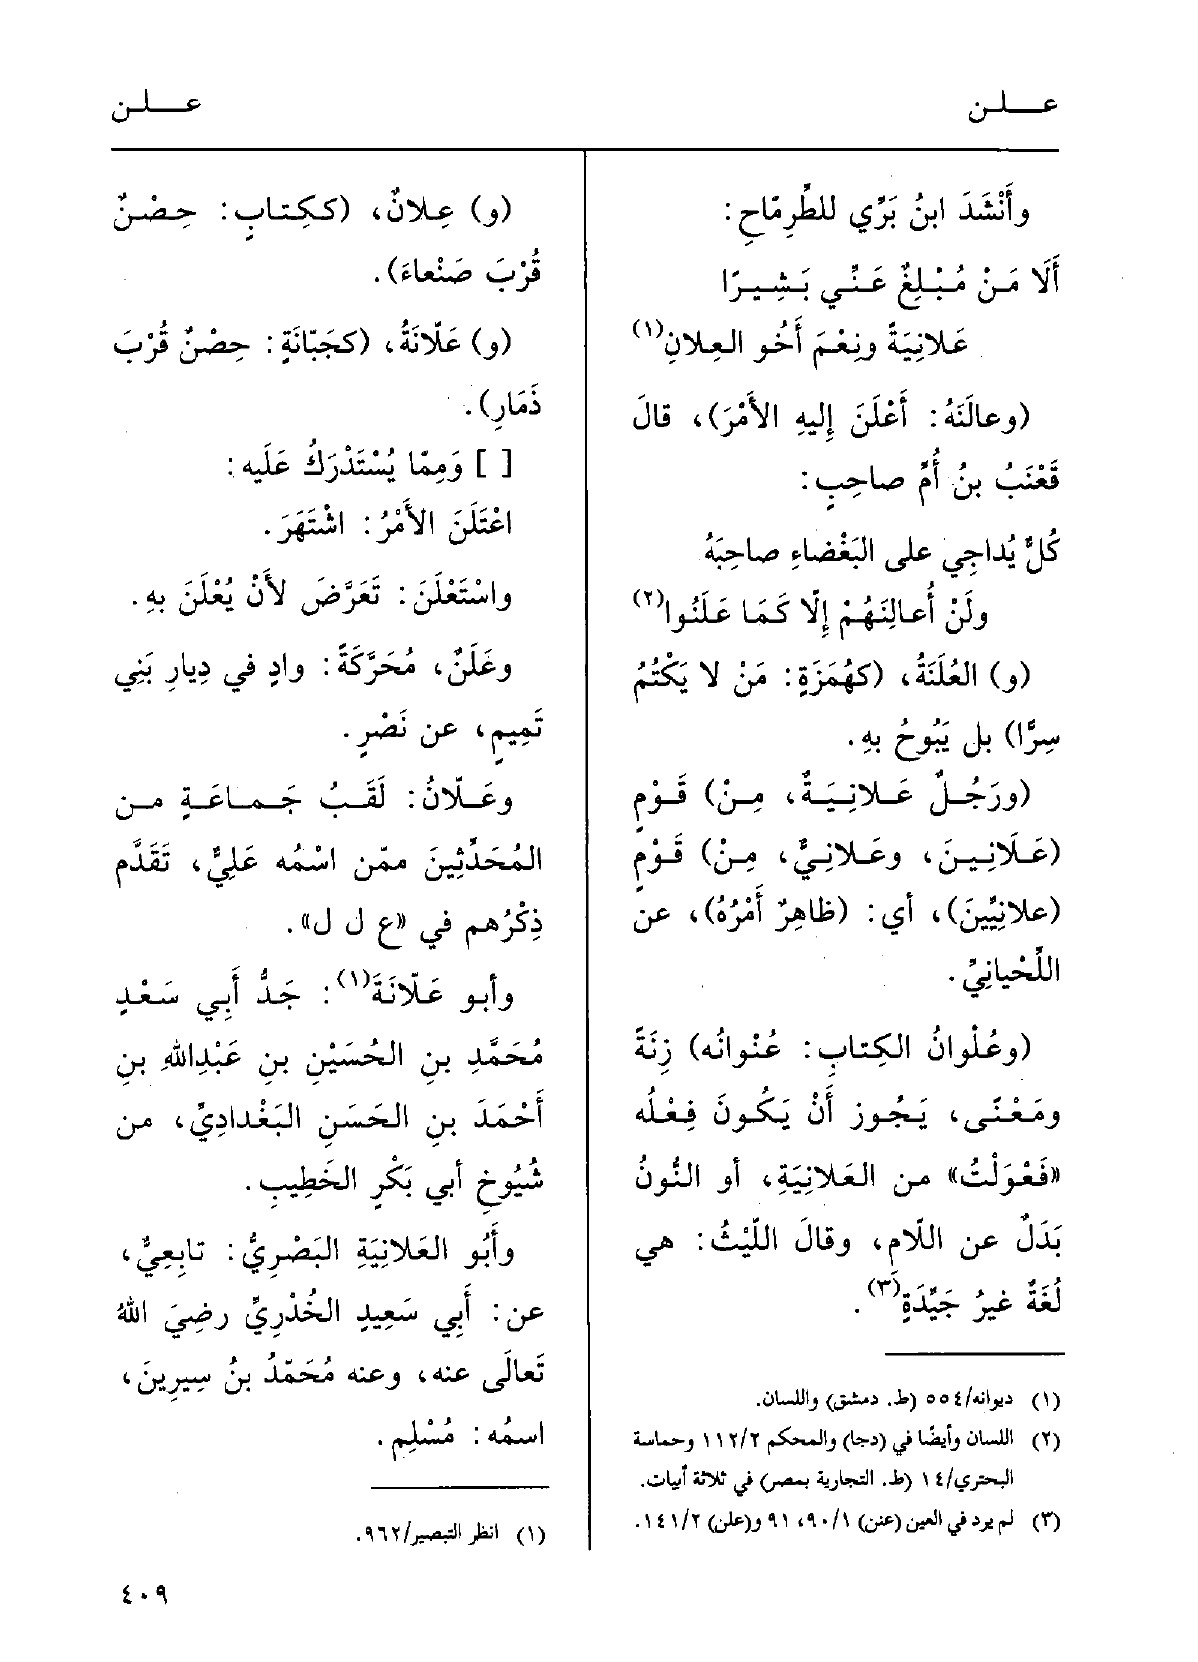 عـــلـن
عـــلـن
وأَنْشَدَ ابنُ بَرِّي للطِّرِمّاحِ :
أَلَا مَـنْ مُـبْـلِغٌ عَـنِّـي بَـشِـيـرًا
عَلانِيَةً ونِعْمَ أَخُو العِلانِ(١)
(وعالَنَهُ : أَعْلَنَ إِليهِ الأَمْرَ)، قالَ
قَعْنَبُ بنُ أُمِّ صاحِبٍ :
كُلٌّ يُداجِي على البَغْضاءِ صاحِبَهُ
ولَنْ أُعالِنَهُمْ إِلّا كَمَا عَلَنُوا(٢)
(و) العُلَنَةُ، (كهُمَزَةٍ: مَنْ لا يَكْتُمُ
سِرًّا) بل يَبُوحُ بهِ .
(ورَجُـلٌ عَـلانِـيَـةٌ، مِـنْ) قَـوْمٍ
(عَـلَانِـيـنَ، وعَـلانِـيٌّ، مِـنْ) قَـوْمٍ
(علانِيِّينَ)، أي: (ظاهِرٌ أَمْرُهُ)، عن
اللِّحْيانِيِّ .
(وعُلْوانُ الكِتابِ: عُنْوانُه) زِنَةً
ومَعْنًى، يَجُوز أَنْ يَكُونَ فِعْلُه
«فَعْوَلْتُ» من العَلانِيَةِ، أو النُّونُ
بَدَلٌ عن اللّام، وقالَ اللّيْثُ: هي
لُغَةٌ غيرُ جَيِّدَةٍ(٣) .
(١) ديوانه/٥٥٤ (ط. دمشق) واللسان.
(٢) اللسان وأيضًا في (دجا) والمحكم ١١٢/٢ وحماسة
البحتري/١٤ (ط. التجارية بمصر) في ثلاثة أبيات.
(٣) لم يرد في العين (عنن) ٩٠/١، ٩١ و(علن) ١٤١/٢.
(و) عِلانٌ، (ككِتابٍ: حِصْنٌ
قُرْبَ صَنْعاءَ) .
(و) عَلّانَةُ، (كجَبّانَةٍ: حِصْنٌ قُرْبَ
ذَمَارِ) .
[ ] وَمِمّا يُسْتَدْرَكُ عَلَيه :
اعْتَلَنَ الأَمْرُ: اشْتَهَرَ .
واسْتَعْلَنَ: تَعَرَّضَ لأَنْ يُعْلَنَ بهِ .
وعَلَنٌ، مُحَرَّكَةً: وادٍ في دِيارِ بَنِي
تَمِيمٍ، عن نَصْرٍ .
وعَـلّانُ: لَقَـبُ جَـمـاعَـةٍ مـن
المُحَدِّثِينَ ممّن اسْمُه عَلِيٌّ، تَقَدَّم
ذِكْرُهم في «ع ل ل» .
وأبو عَلّانَةَ(١): جَدُّ أَبِي سَعْدٍ
مُحَمَّدِ بنِ الحُسَيْنِ بنِ عَبْدِاللهِ بنِ
أَحْمَدَ بنِ الحَسَنِ البَغْدادِيِّ، من
شُيُوخِ أبي بَكْرٍ الخَطِيبِ .
وأَبُو العَلانِيَةِ البَصْرِيُّ: تابِعِيٌّ،
عن: أَبِي سَعِيدٍ الخُدْرِيِّ رضِيَ اللهُ
تَعالَى عنه، وعنه مُحَمّدُ بنُ سِيرِينَ،
اسمُه: مُسْلِم .
(١) انظر التبصير/٩٦٢.
٤٠٩